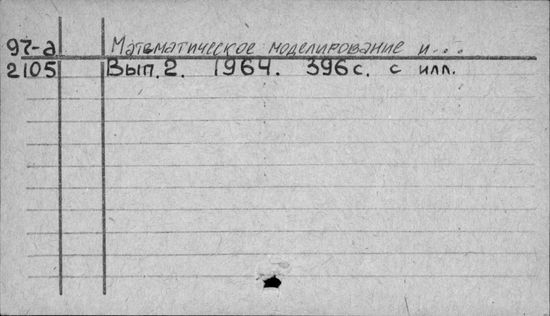 97-а Математическое моделирование и...
2105 Вып. 2. 1964. 396 с. с илл.